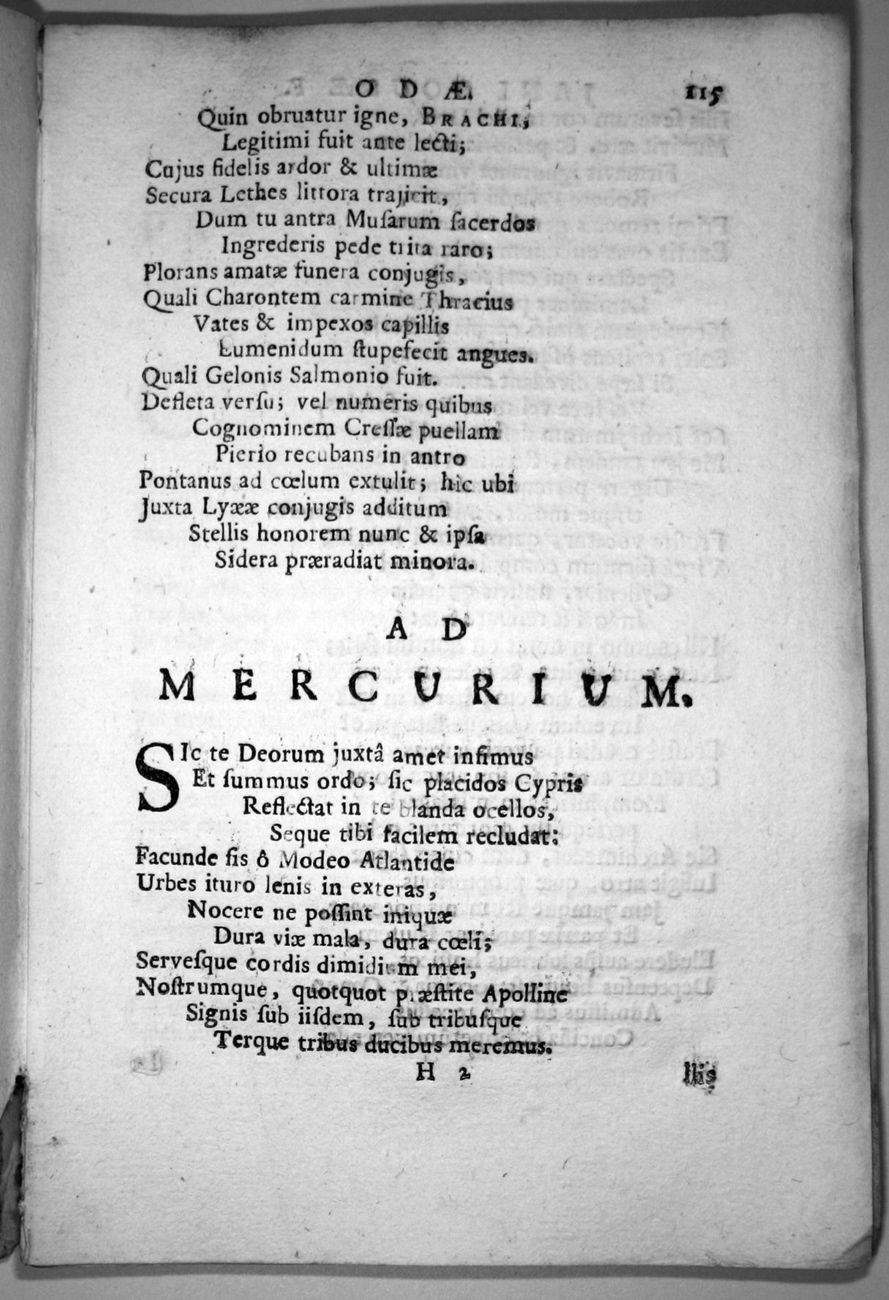 ODÆ. 115
Quin obruatur igne, BRACHI,
Legitimi fuit ante lecti;
Cujus fidelis ardor & ultimæ
Secura Lethes littora trajicit,
Dum tu antra Muſarum ſacerdos
Ingrederis pede trita raro;
Plorans amatæ funera conjugis,
Quali Charontem carmine Thracius
Vates & impexos capillis
Eumenidum ſtupefecit angues.
Quali Gelonis Salmonio fuit.
Defleta verſu; vel numeris quibus
Cognominem Creſſæ puellam
Pierio recubans in antro
Pontanus ad cœlum extulit; hic ubi
Juxta Lyææ conjugis additum
Stellis honorem nunc & ipſa
Sidera præradiat minora.
AD
MERCURIUM.
SIc te Deorum juxtâ amet infimus
Et ſummus ordo; ſic placidos Cypris
Reflectat in te blanda ocellos,
Seque tibi facilem recludat:
Facunde ſis ô Modeo Atlantide
Urbes ituro lenis in exteras,
Nocere ne poſſint iniquæ
Dura viæ mala, dura cœli;
Serveſque cordis dimidium mei,
Noſtrumque, quotquot præſtite Apolline
Signis ſub iiſdem, ſub tribuſque
Terque tribus ducibus meremus.
H 2 Illis